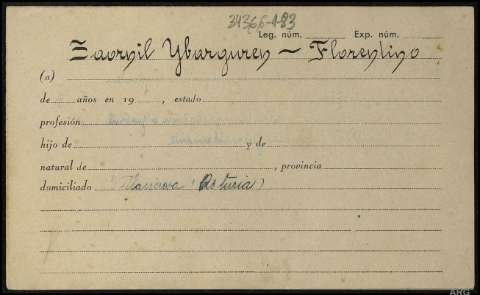 34366-1-83
Leg. núm. Exp. núm.
Zavonil Ybarguren – Florentino
(a)
de años en 19 , estado
profesión
hijo de y de
natural de , provincia
domiciliado Villanueva (Asturia)
ARG